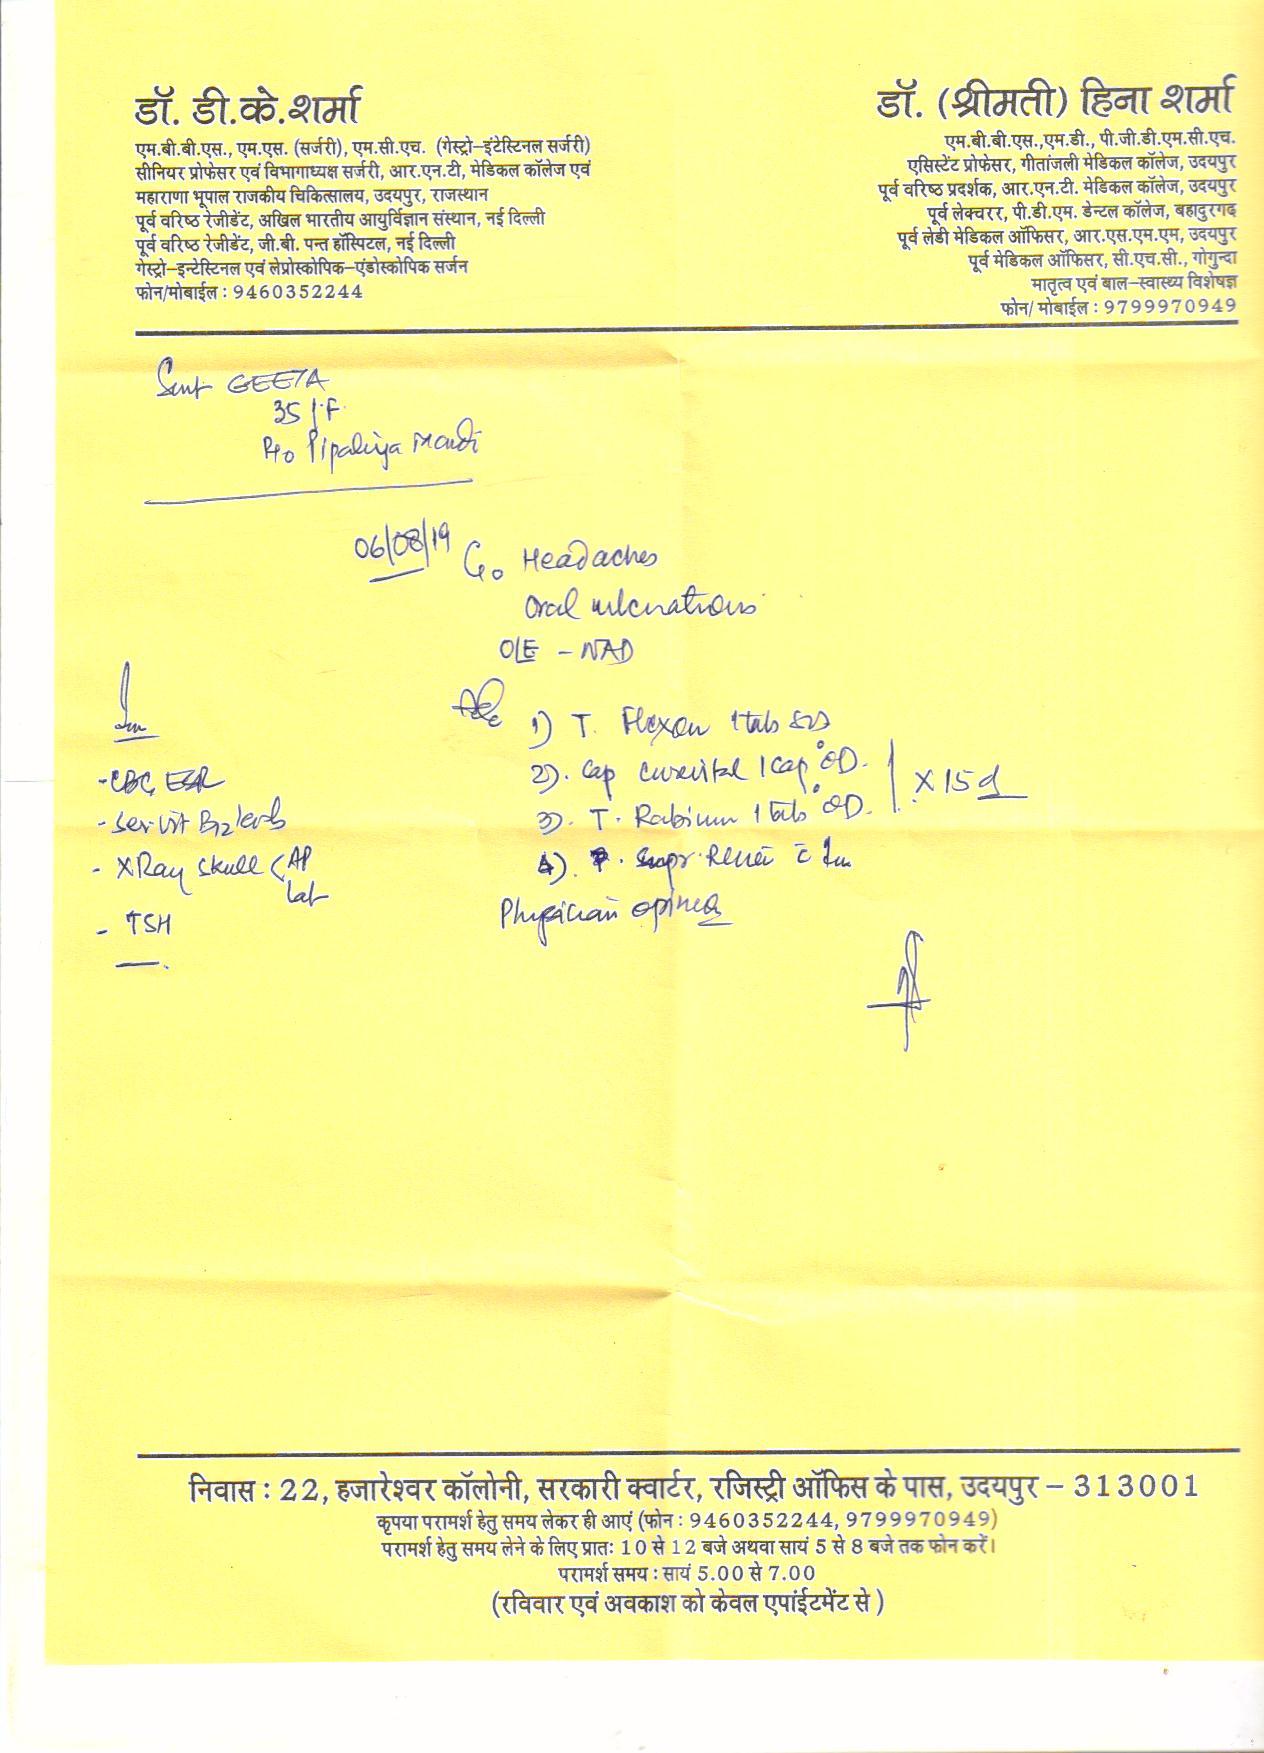 डॉ. डी.के.शर्मा
एम.बी.बी.एस., एम.एस. (सर्जरी), एम.सी.एच. (गेस्ट्रो-इंटेस्टिनल सर्जरी)
सीनियर प्रोफेसर एवं विभागाध्यक्ष सर्जरी, आर.एन.टी, मेडिकल कॉलेज एवं
महाराणा भूपाल राजकीय चिकित्सालय, उदयपुर, राजस्थान
पूर्व वरिष्ठ रेजीडेंट, अखिल भारतीय आयुर्विज्ञान संस्थान, नई दिल्ली
पूर्व वरिष्ठ रेजीडेंट, जी.बी. पन्त हॉस्पिटल, नई दिल्ली
गेस्ट्रो-इन्टेस्टिनल एवं लेप्रोस्कोपिक-एंडोस्कोपिक सर्जन
फोन/मोबाईल : 9460352244
डॉ. (श्रीमती) हिना शर्मा
एम.बी.बी.एस.,एम.डी., पी.जी.डी.एम.सी.एच.
एसिस्टेंट प्रोफेसर, गीतांजली मेडिकल कॉलेज, उदयपुर
पूर्व वरिष्ठ प्रदर्शक, आर.एन.टी. मेडिकल कॉलेज, उदयपुर
पूर्व लेक्चरर, पी.डी.एम. डेन्टल कॉलेज, बहादुरगढ़
पूर्व लेडी मेडिकल ऑफिसर, आर.एस.एम.एम, उदयपुर
पूर्व मेडिकल ऑफिसर, सी.एच.सी., गोगुन्दा
मातृत्व एवं बाल-स्वास्थ्य विशेषज्ञ
फोन/ मोबाईल : 9799970949
Smt GEETA
35/F
R/o Pipaliya Mandi
06/08/19 C/o Headaches
Oral ulcerations
O/E - NAD
Adv 1) T. Flexon 1 tab
2). Cap 1 cap OD.
3). T. Rabium 1 tab OD.
X 15 d
4).
Physician opinion
Inv
- CBC, ESR
- Ser Vit B12 levels
- X Ray Skull (AP
Lat
- TSH
निवास : 22, हजारेश्वर कॉलोनी, सरकारी क्वार्टर, रजिस्ट्री ऑफिस के पास, उदयपुर – 313001
कृपया परामर्श हेतु समय लेकर ही आएं (फोन : 9460352244, 9799970949)
परामर्श हेतु समय लेने के लिए प्रातः 10 से 12 बजे अथवा सायं 5 से 8 बजे तक फोन करें।
परामर्श समय : सायं 5.00 से 7.00
(रविवार एवं अवकाश को केवल एपांईटमेंट से )